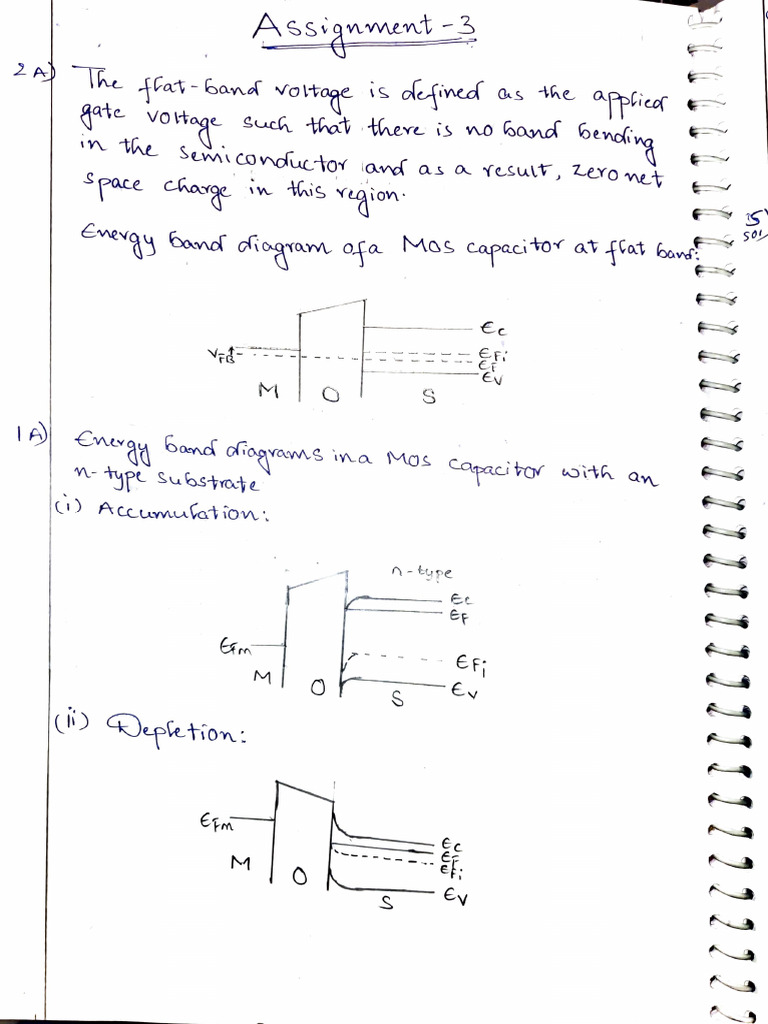 Assignment-3
2A) The flat-band voltage is defined as the applied
gate voltage such that there is no band bending
in the semiconductor and as a result, zero net
space charge in this region.
Energy band diagram of a MOS capacitor at flat band:
Ec
VFB
EFi
EF
Ev
M O S
1A) Energy band diagrams in a MOS capacitor with an
n-type substrate
(i) Accumulation:
n-type
Ec
EF
EFm
EFi
M O S Ev
(ii) Depletion:
EFm
Ec
EF
EFi
M O S Ev